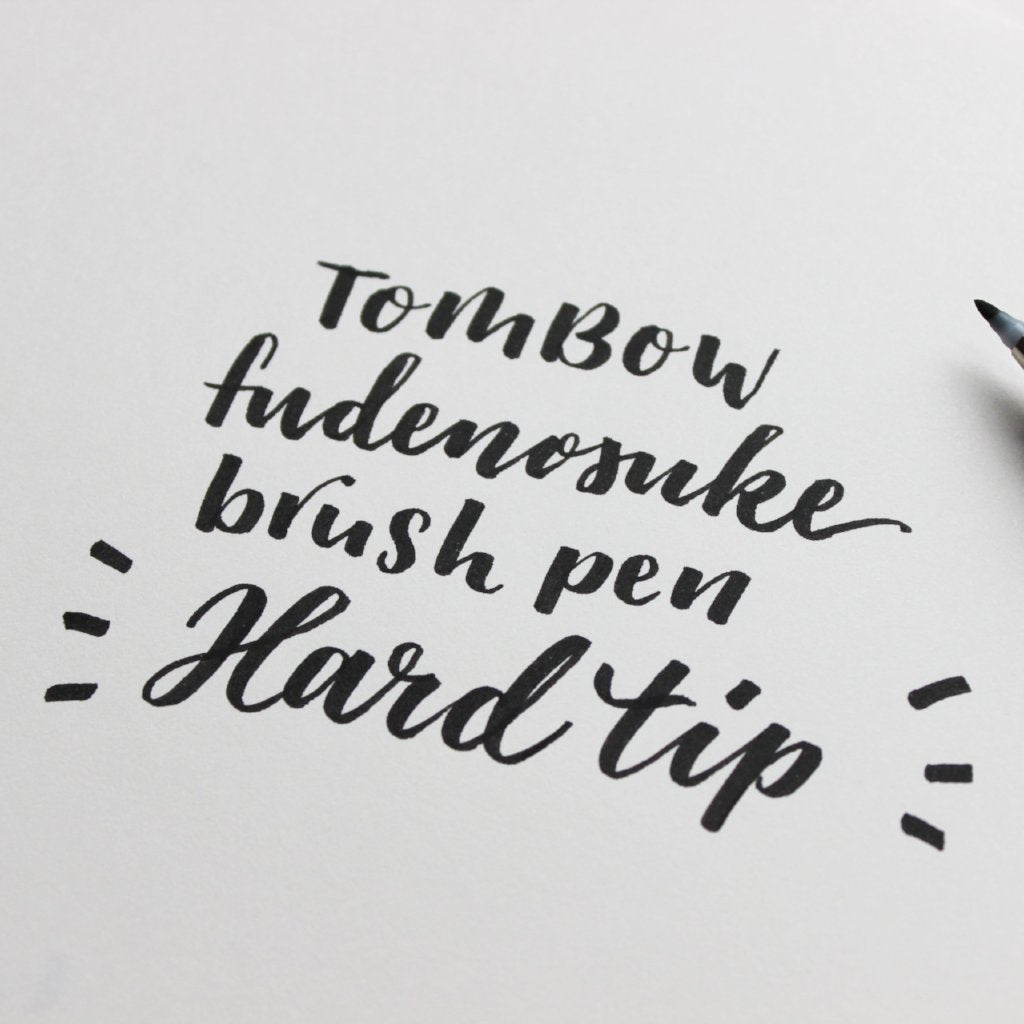 TomBow
fudenosuke
brush pen
Hard tip